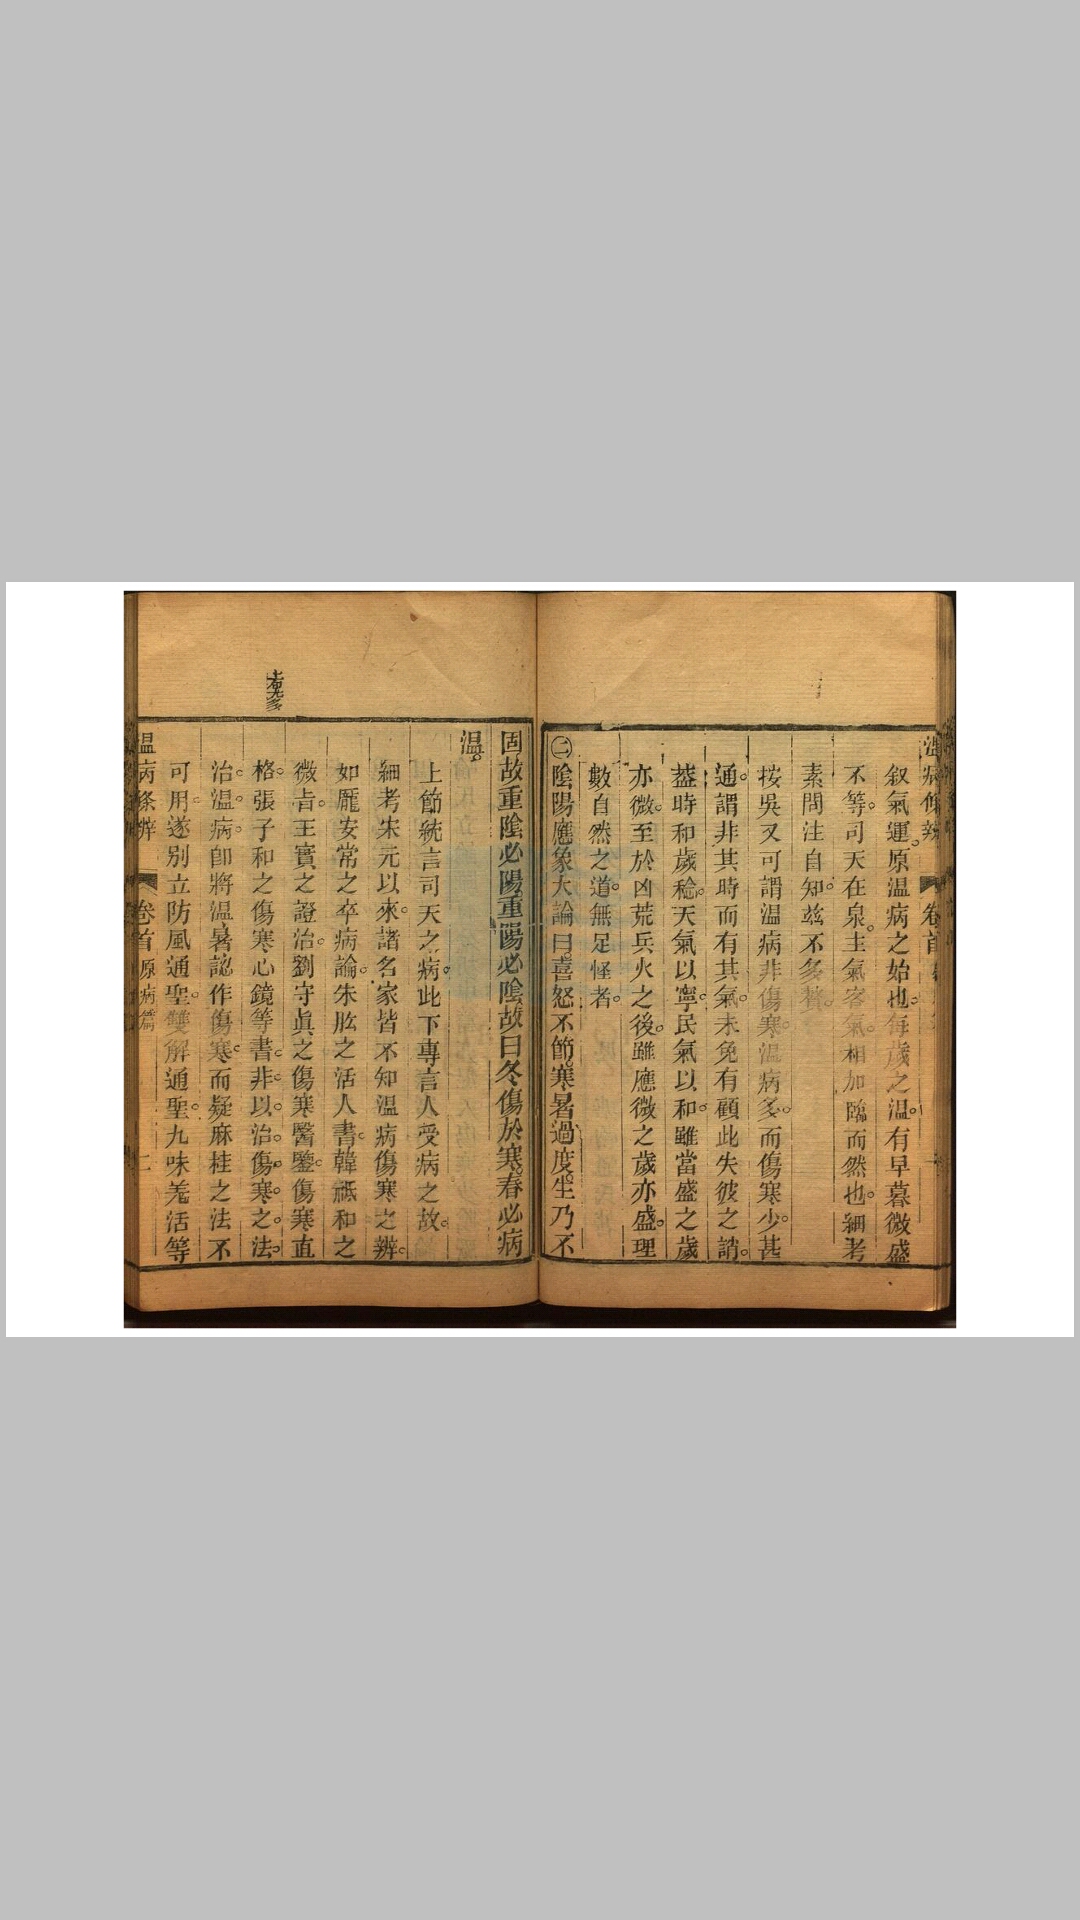 叙氣運原温病之始也每歲之温有早暮微盛
不等司天在泉主氣客氣相加臨而然也細考
素問注自知兹不多贅
按吳又可謂温病非傷寒温病多而傷寒少甚
通謂非其時而有其氣未免有顧此失彼之誚
葢時和歲稔天氣以寧民氣以和雖當盛之歲
亦微至於凶荒兵火之後雖應微之歲亦盛理
數自然之道無足怪者
㊁陰陽應象大論曰喜怒不節寒暑過度生乃不
固故重陰必陽重陽必陰故曰冬傷於寒春必病
温
上節統言司天之病此下專言人受病之故
細考宋元以來諸名家皆不知温病傷寒之辨
如龎安常之卒病論朱肱之活人書韓祗和之
微旨王實之證治劉守眞之傷寒醫鑒傷寒直
格張子和之傷寒心鏡等書非以治傷寒之法
治温病卽將温暑認作傷寒而疑麻桂之法不
可用遂别立防風通聖雙解通聖九味羌活等
温病條辨 卷首 原病篇 二